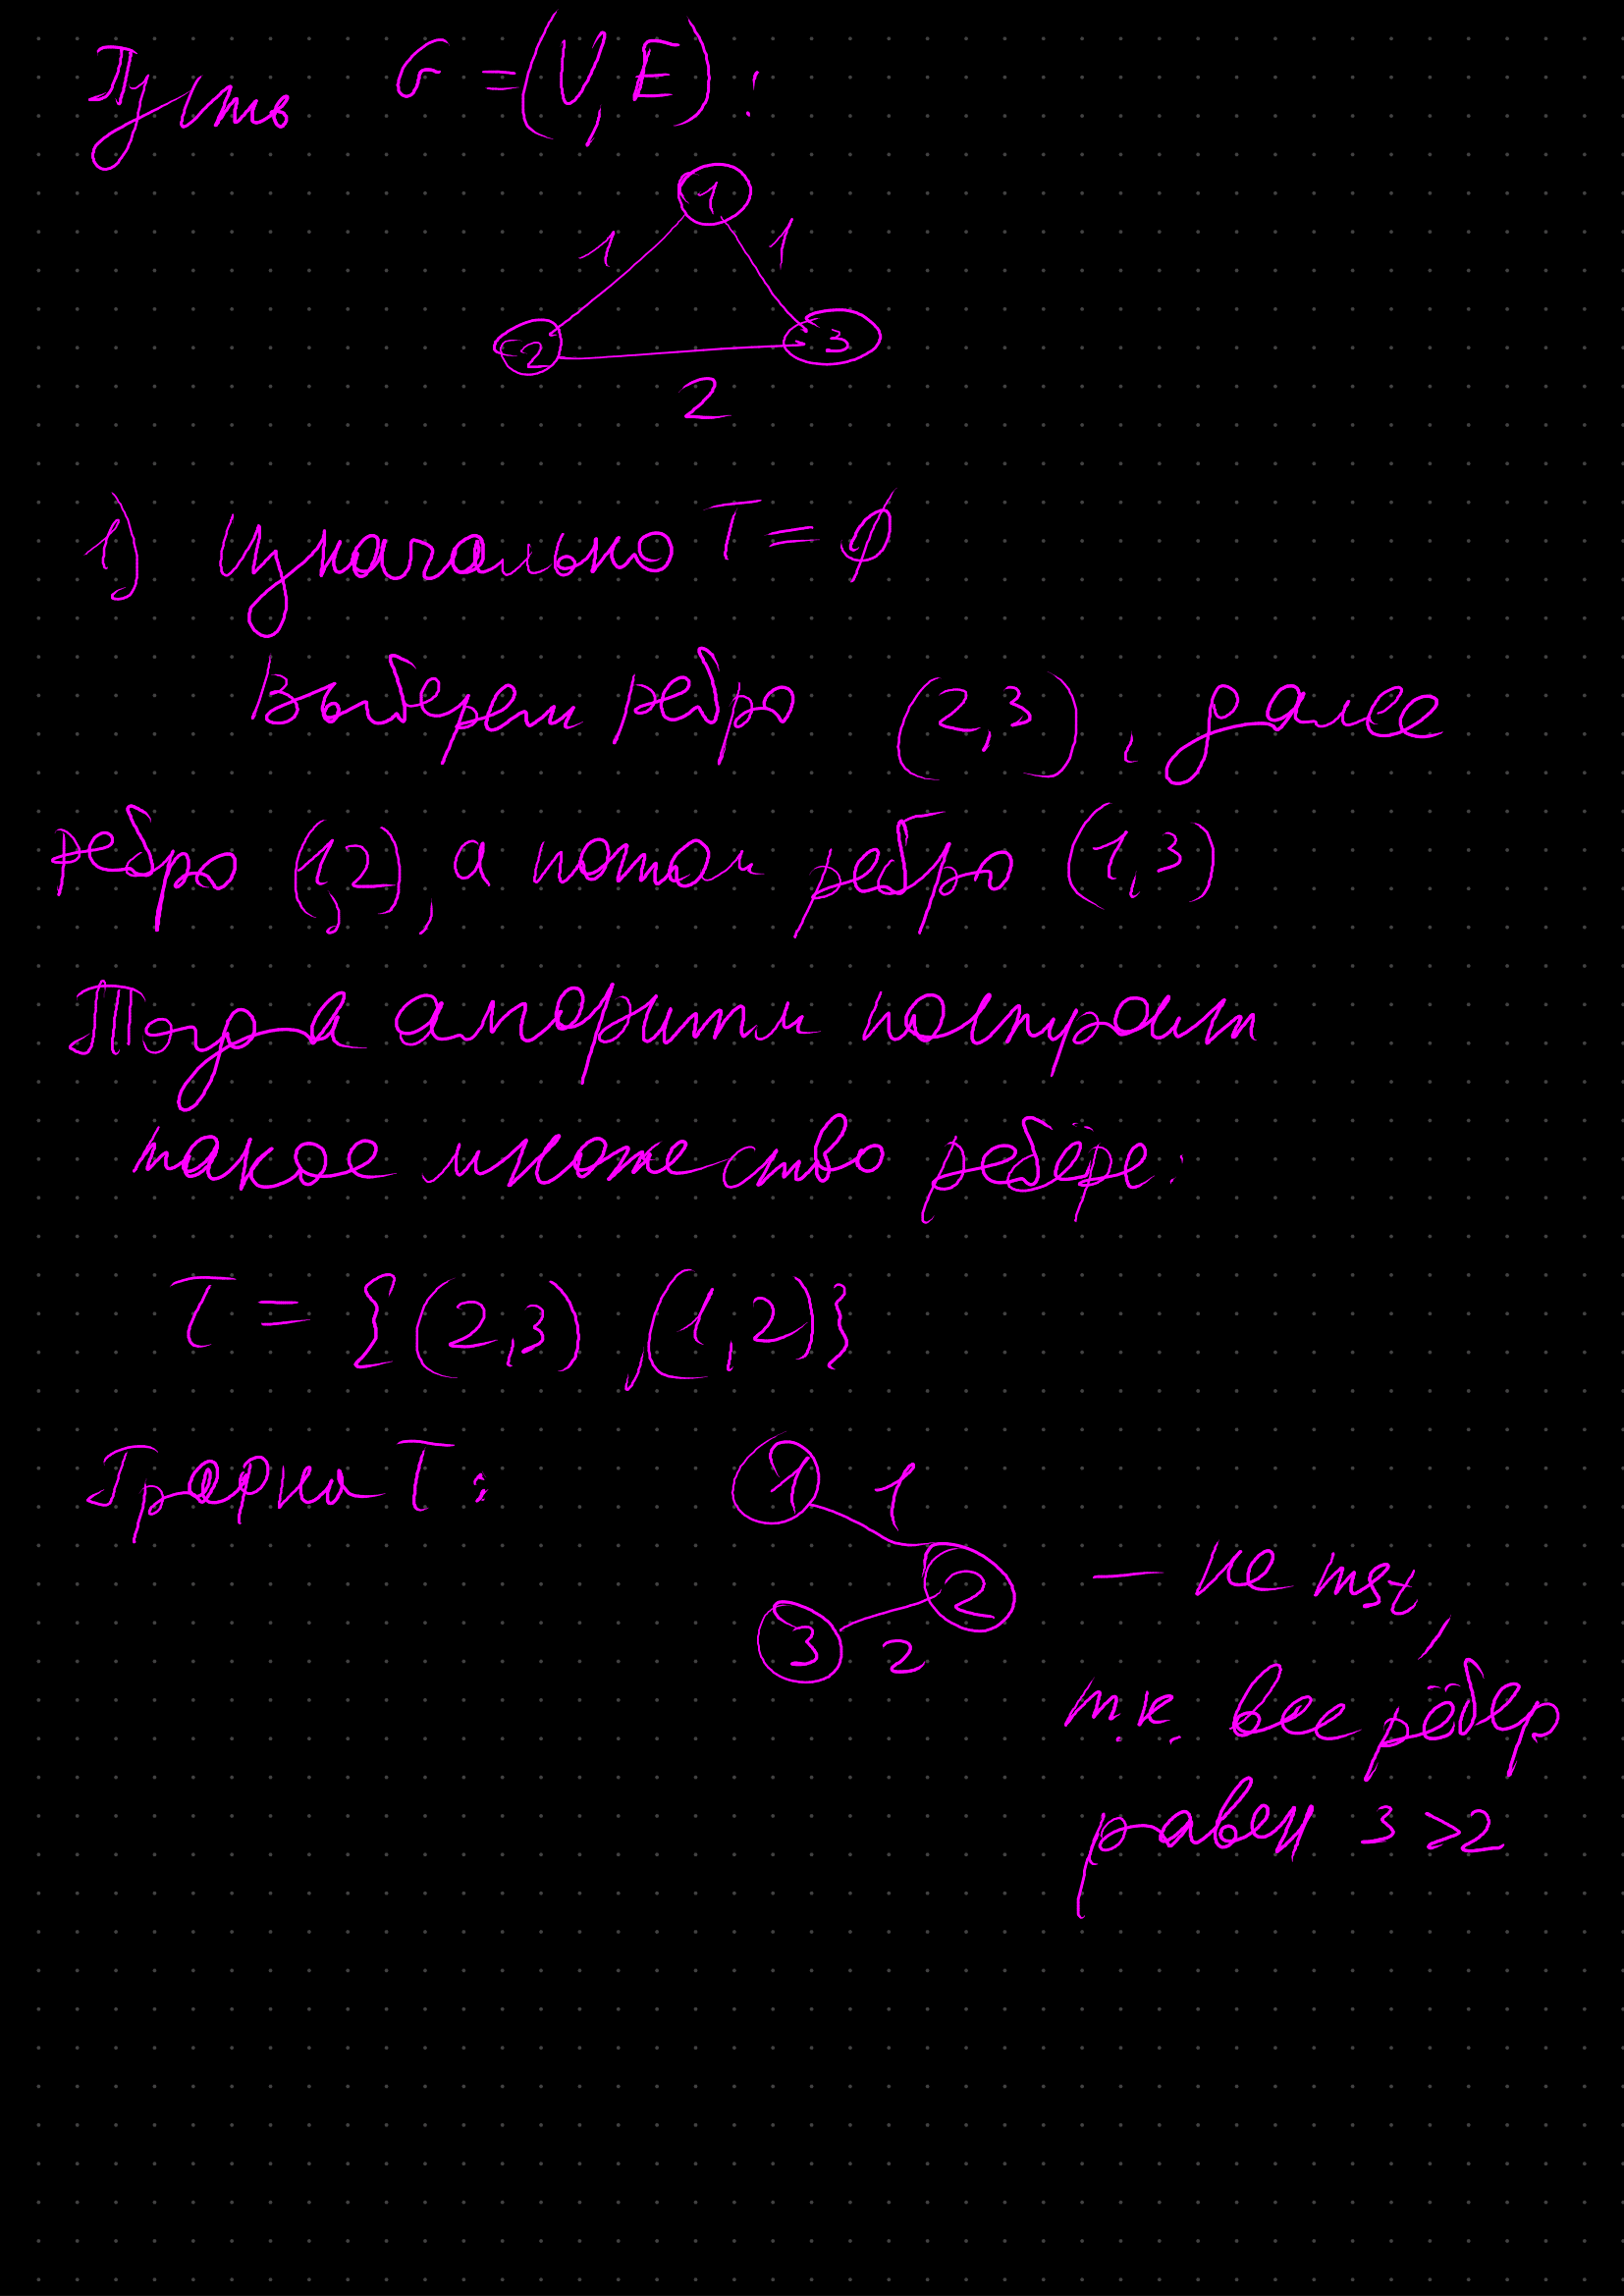 Пусть G = (V, E):
1
1 1
2 3
2
1) Изначально T = ∅
Выберем ребро (2,3), далее
ребро (1,2), а потом ребро (1,3)
Тогда алгоритм построит
такое множество ребёр:
T = {(2,3), (1,2)}
Графика T:
1 1
2 — не mst,
3 2
т.к. вес рёбер
равен 3 > 2